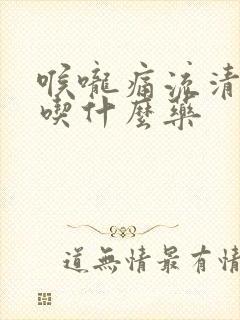 喉嚨痛流清
喫什麼藥
道無情最有情